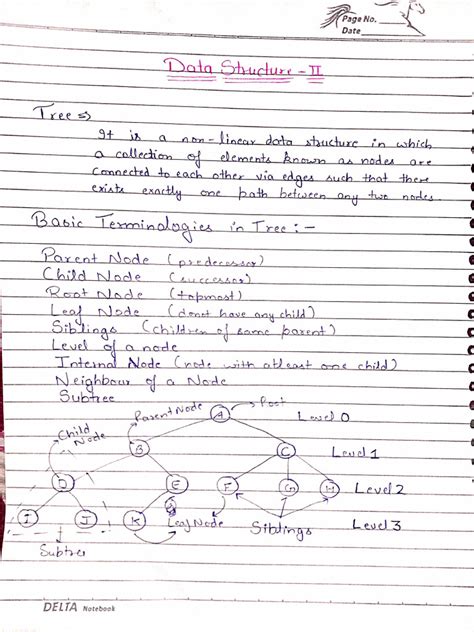 Page No.
Date
Data Structure - II
Tree ⇒
It is a non-linear data structure in which
a collection of elements known as nodes are
connected to each other via edges such that there
exists exactly one path between any two nodes.
Basic Terminologies in Tree : -
Parent Node (predecessor)
Child Node (successor)
Root Node (topmost)
Leaf Node (donot have any child)
Siblings (children of same parent)
Level of a node
Internal Node (node with atleast one child)
Neighbour of a Node
Subtree
Parent Node A Root Level 0
Child Node B C Level 1
D E F G H Level 2
I J K Leaf Node Siblings Level 3
Subtree
DELTA Notebook